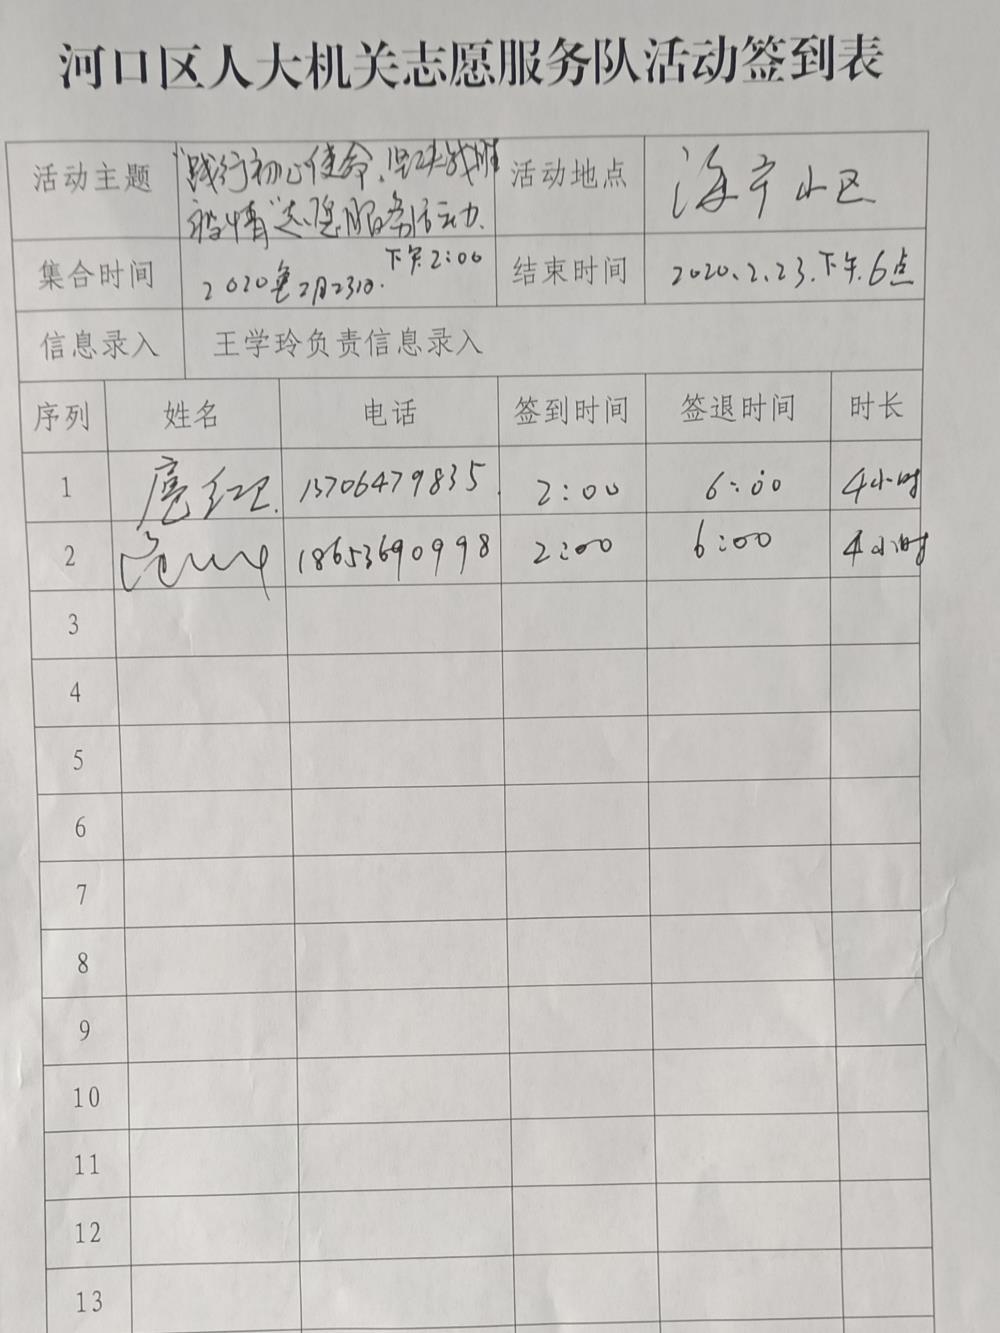 河口区人大机关志愿服务队活动签到表
活动主题 "践行初心使命、坚决战胜疫情"志愿服务活动. 活动地点 海宁小区
集合时间 2020年2月23日.下午2:00 结束时间 2020.2.23.下午.6点
信息录入 王学玲负责信息录入
序列 姓名 电话 签到时间 签退时间 时长
1 扈红卫. 13706479835. 2:00 6:00 4小时
2 18653690998 2:00 6:00 4小时
3
4
5
6
7
8
9
10
11
12
13